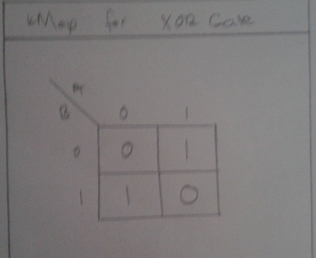 kMap for XOR Gate
A
B 0 1
0 0 1
1 1 0